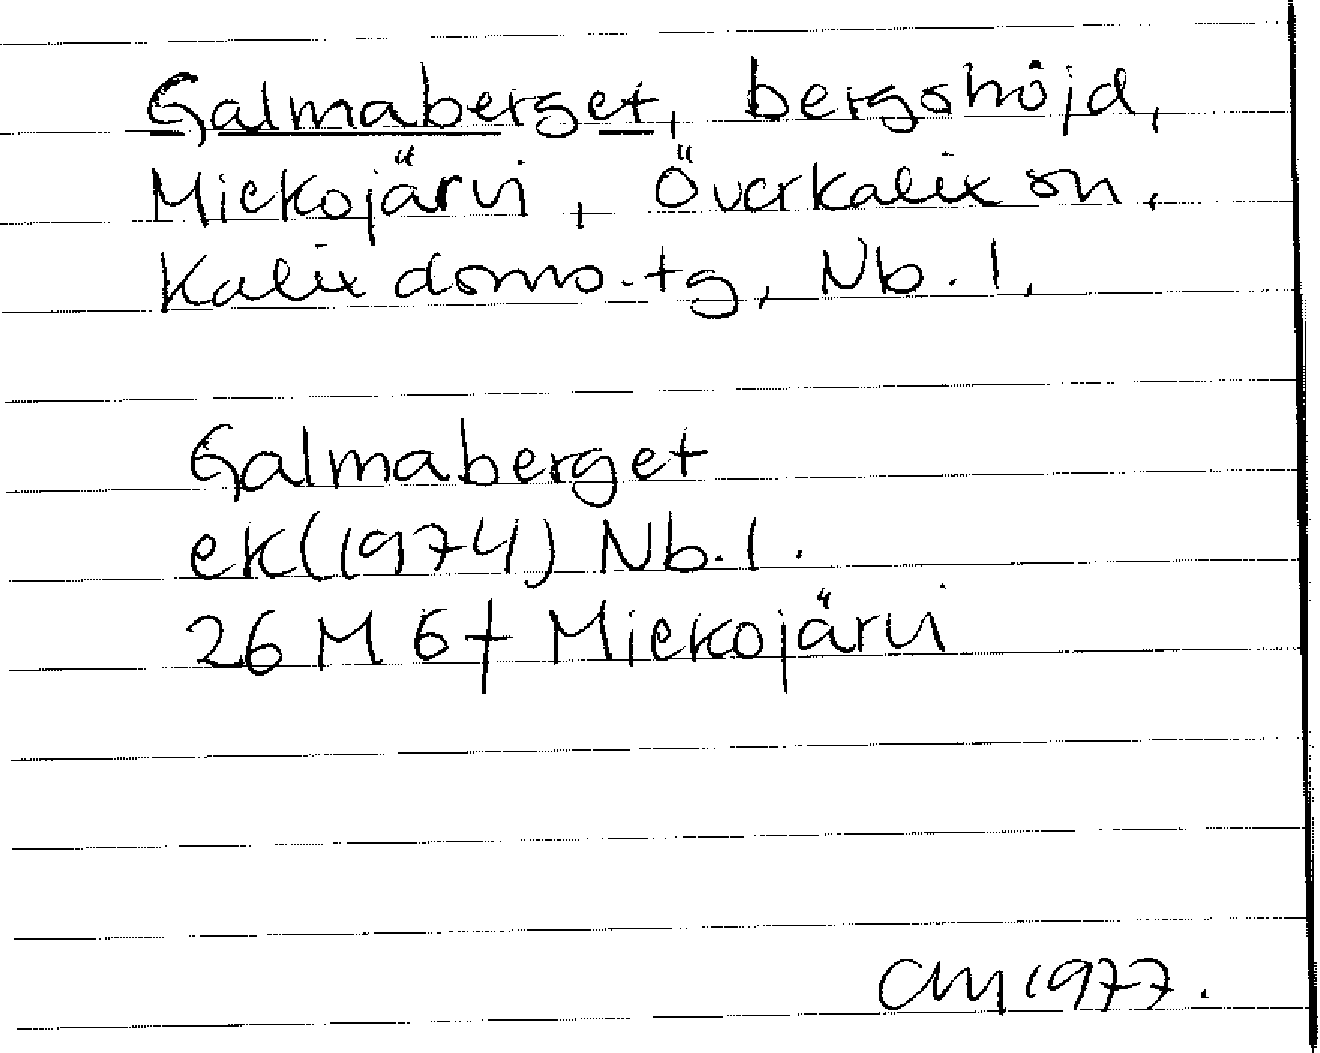 Galmaberget, bergshöjd,
Miekojärvi, Överkalix sn,
Kalix doms.-tg, Nb. l.
Galmaberget
ek(1974) Nb. l.
26 M 6f Miekojärvi
1977.